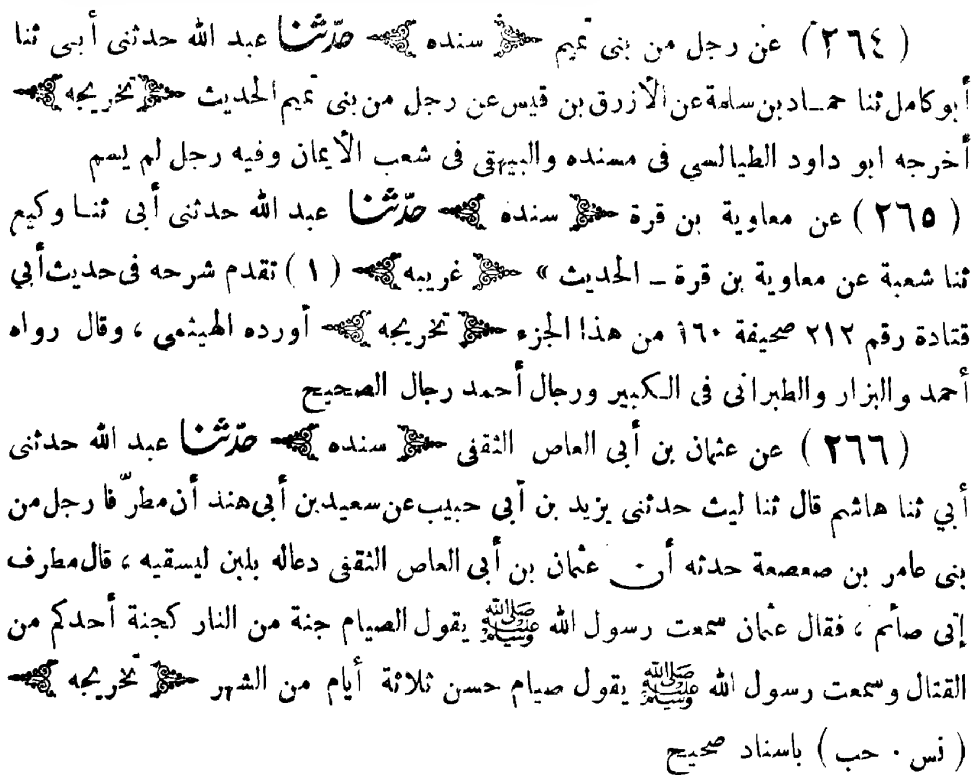 ( ٢٦٤ ) عن رجل من بنى تميم ﴿ سنده ﴾ حدّثنا عبد الله حدثنى أبى ثنا
أبو كامل ثنا حمـاد بن سلمة عن الأزرق بن قيس عن رجل من بنى تميم الحديث ﴿ تخريجه ﴾
أخرجه ابو داود الطيالسي فى مسنده والبيهقى فى شعب الأيمان وفيه رجل لم يسم
( ٢٦٥ ) عن معاوية بن قرة ﴿ سنده ﴾ حدّثنا عبد الله حدثنى أبى ثنـا وكيع
ثنا شعبة عن معاوية بن قرة ـ الحديث » ﴿ غريبه ﴾ ( ١ ) تقدم شرحه فى حديث أبي
قتادة رقم ٢١٢ صحيفة ١٦٠ من هذا الجزء ﴿ تخريجه ﴾ أورده الهيثمي ، وقال رواه
أحمد والبزار والطبرانى فى الـكبير ورجال أحمد رجال الصحيح
( ٢٦٦ ) عن عثمان بن أبى العاص الثقفى ﴿ سنده ﴾ حدّثنا عبد الله حدثنى
أبي ثنا هاشم قال ثنا ليث حدثنى يزيد بن أبي حبيب عن سعيد بن أبى هند أن مطرّفا رجل من
بنى عامر بن صعصعة حدثه أن عثمان بن أبى العاص الثقفى دعاله بلبن ليسقيه ، قال مطرف
إنى صائم ، فقال عثمان سمعت رسول الله ﷺ يقول الصيام جنة من النار كجنة أحدكم من
القتال وسمعت رسول الله ﷺ يقول صيام حسن ثلاثة أيام من الشهر ﴿ تخريجه ﴾
( نس . حب ) باسناد صحيح